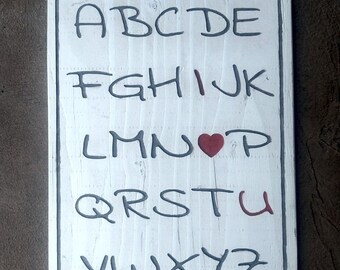 ABCDE
FGHIJK
LMN♥P
QRSTU
VWXYZ